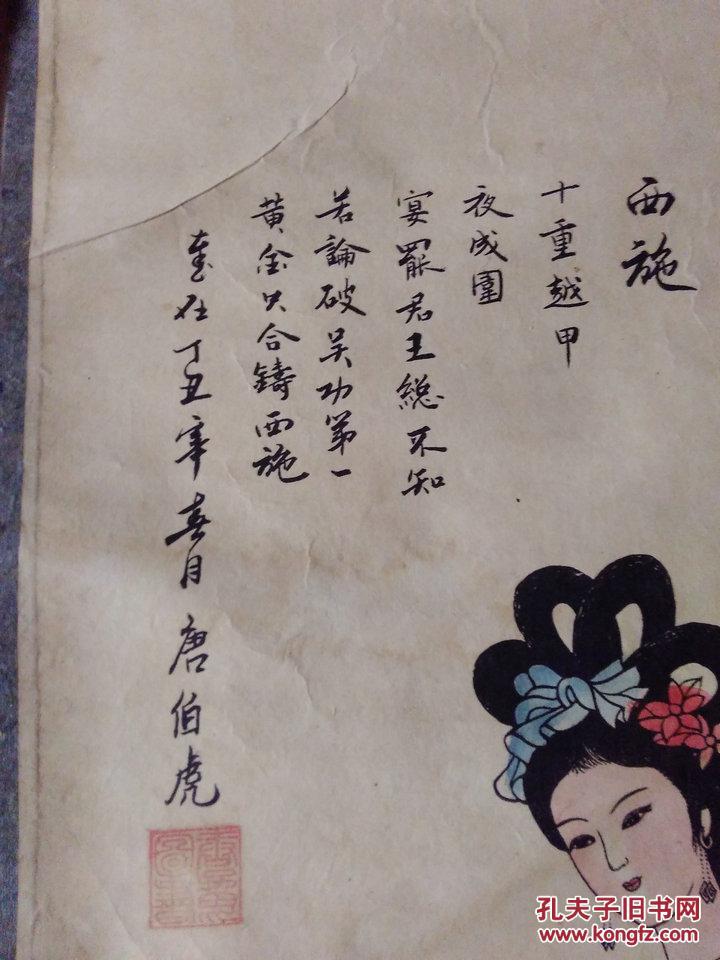 西施
十重越甲
夜成圍
宴罷君王總不知
若論破吴功第一
黄金只合鑄西施
畫在丁丑年春月唐伯虎
孔夫子旧书网
www.kongfz.com